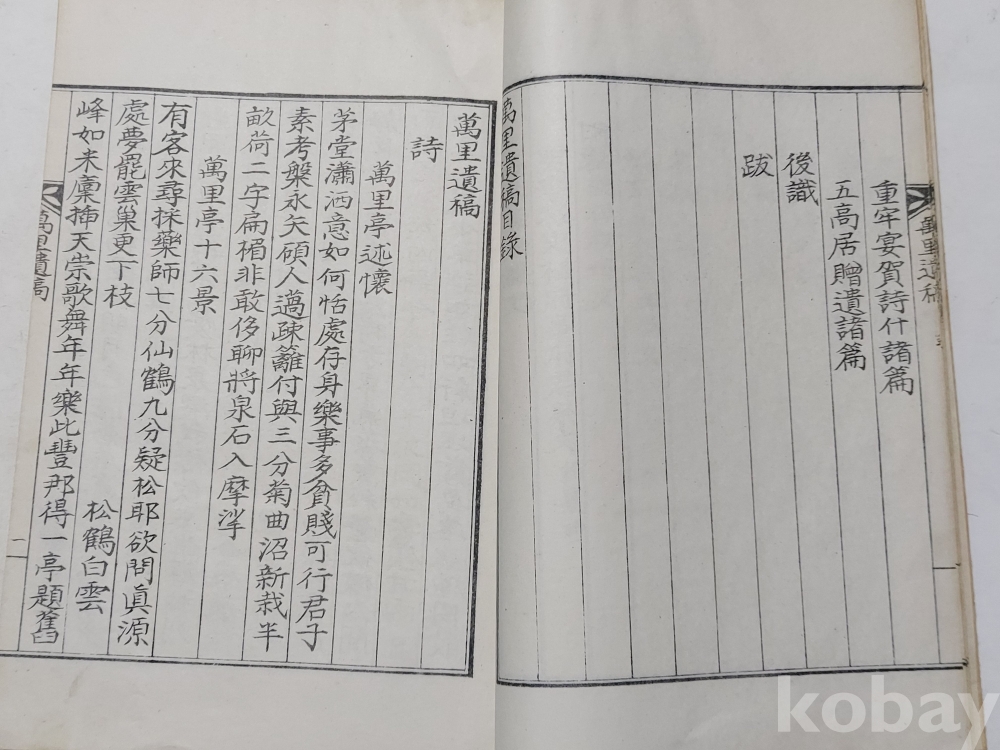 重牢宴賀詩什諸篇
五高居贈遺諸篇
後識
跋
萬里遺稿目錄
萬里遺稿
詩
萬里亭述懷
茅堂瀟洒意如何恬處存身樂事多貧賤可行君子
素考盤永矢碩人薖疎籬付與三分菊曲沼新栽半
畝荷二字扁楣非敢侈聊將泉石入摩挲
萬里亭十六景
有客來尋採藥師七分仙鶴九分疑松耶欲問眞源
處夢罷雲巢更下枝
松鶴白雲
峰如米廩揷天崇歌舞年年樂此豐那得一亭題舊
萬里遺稿
一
萬里遺稿
kobay